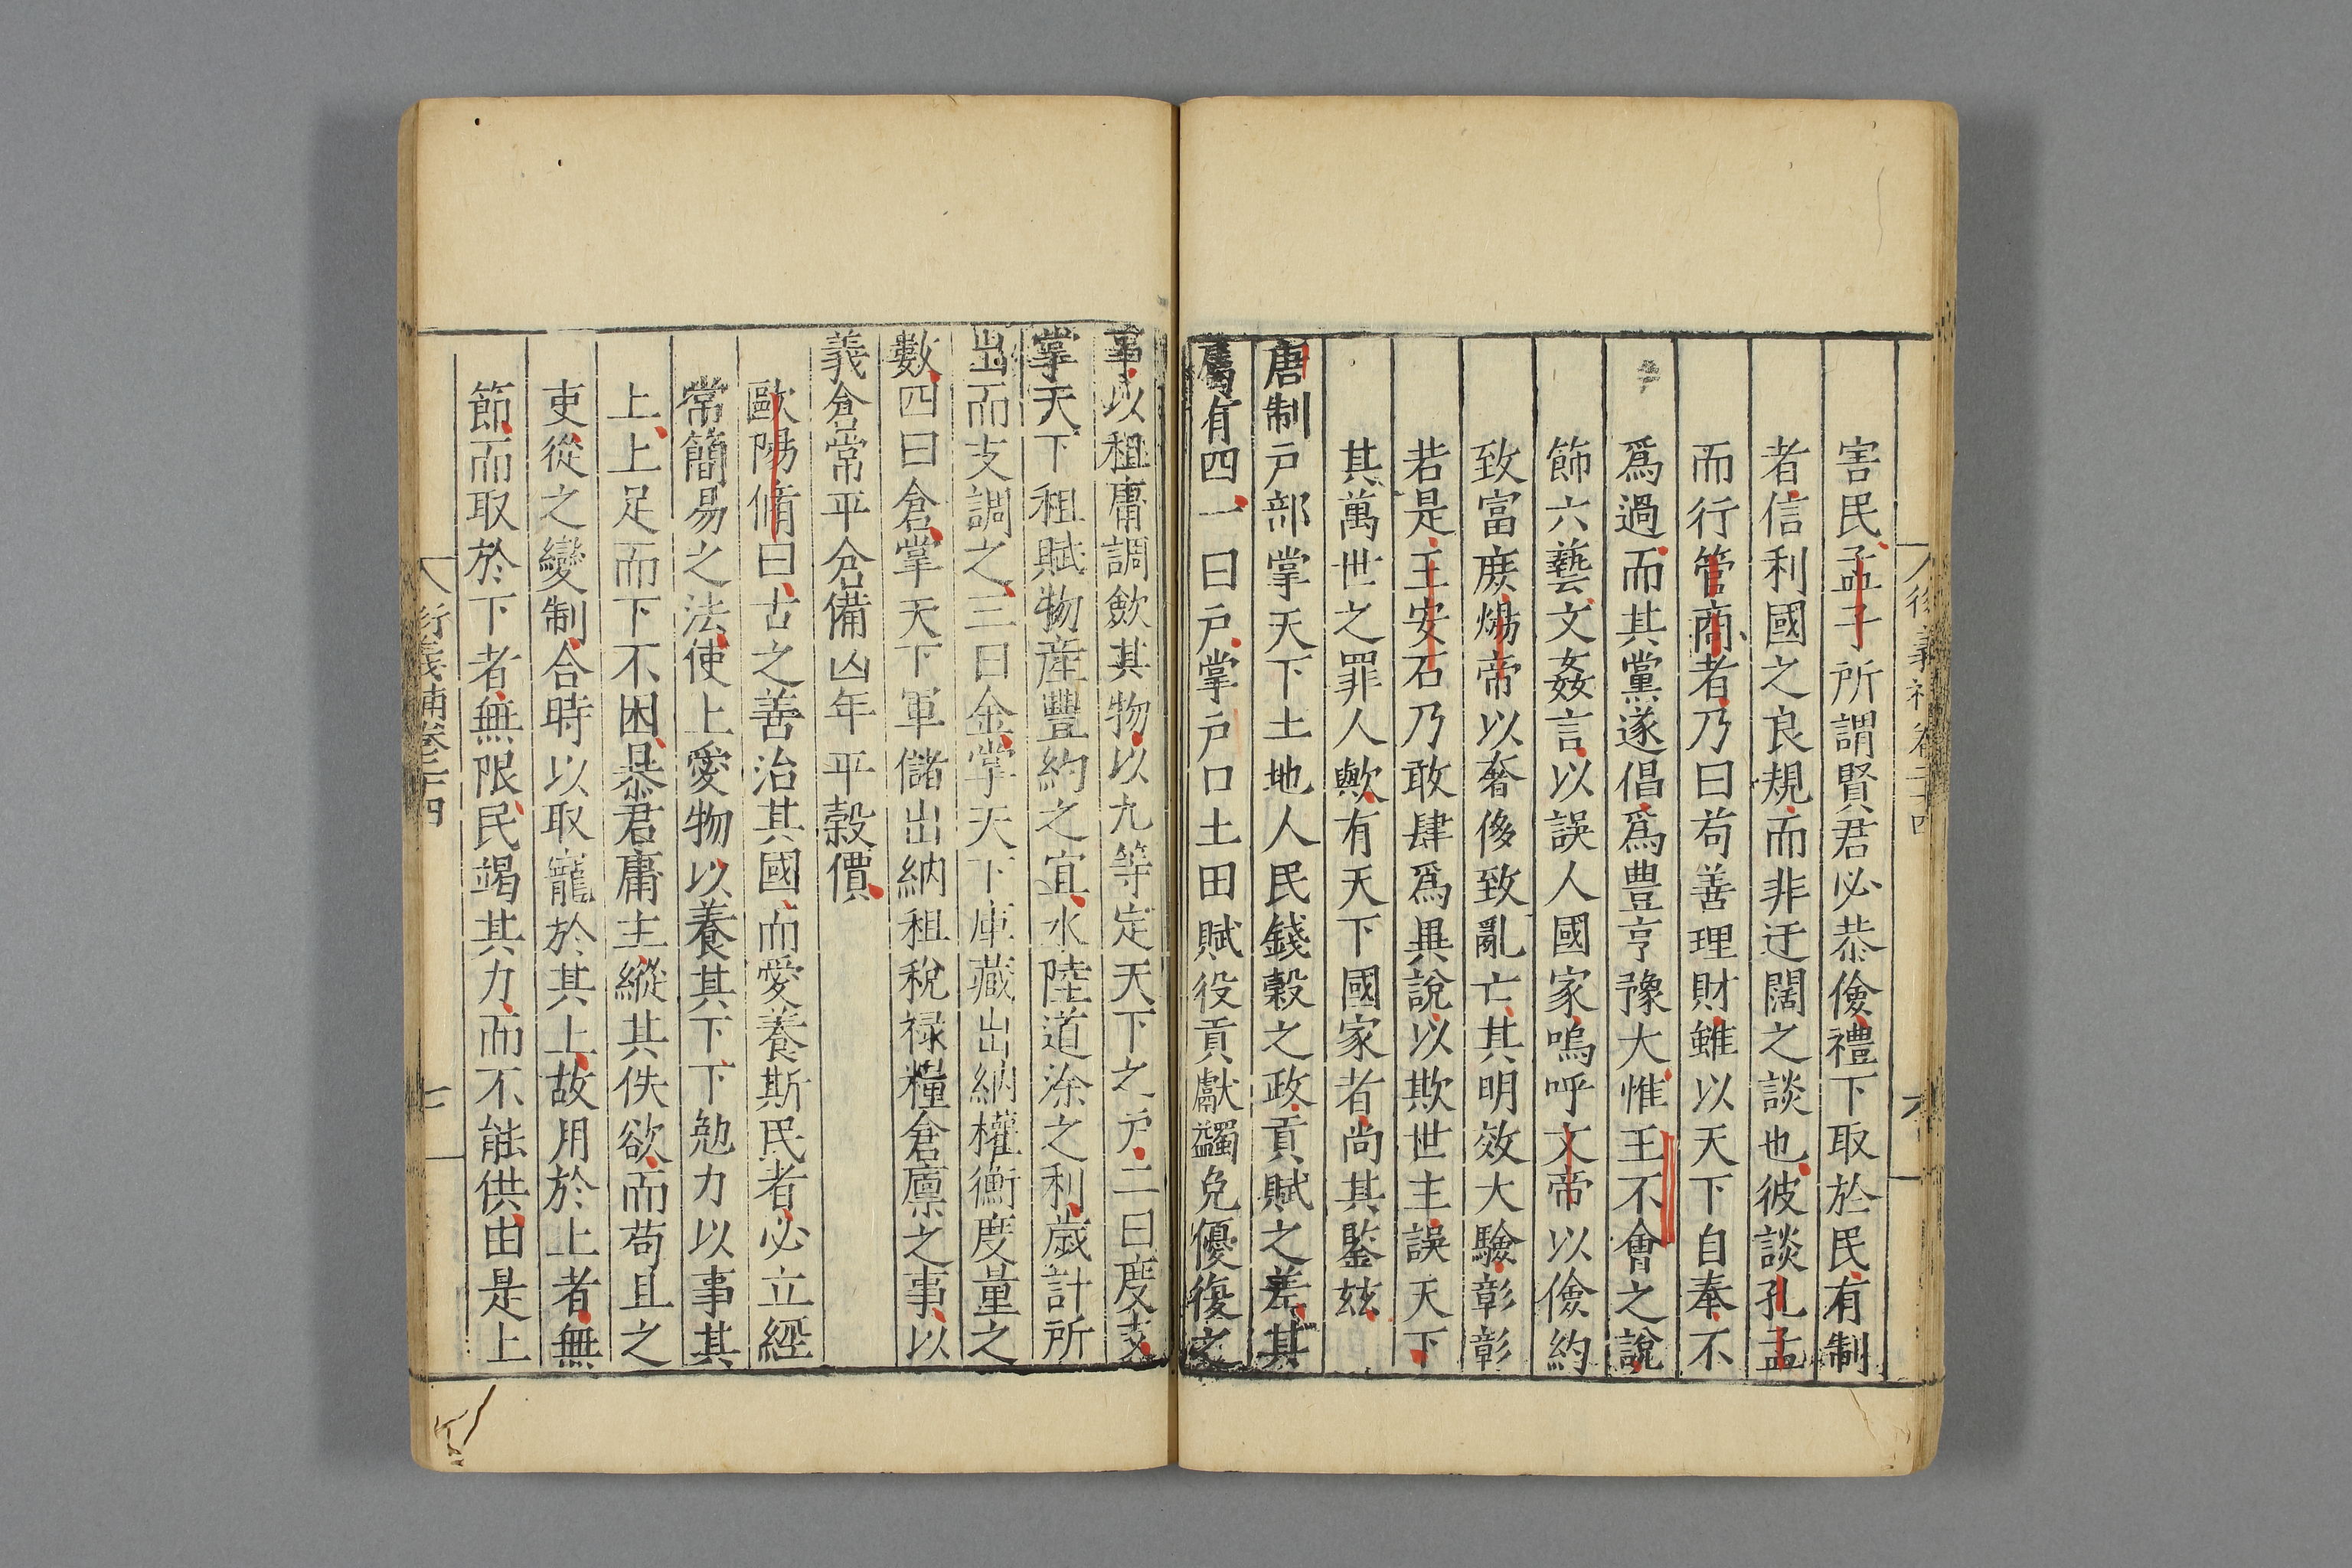 害民孟子所謂賢君必恭儉禮下取於民有制
者信利國之良規而非迂闊之談也彼談孔孟
而行管商者乃曰苟善理財雖以天下自奉不
爲過而其黨遂倡爲豊亨豫大惟王不會之說
飾六藝文姦言以誤人國家嗚呼文帝以儉約
致富庻煬帝以奢侈致亂亡其明效大驗彰彰
若是王安石乃敢肆爲異說以欺世主誤天下
其萬世之罪人歟有天下國家者尚其鑒玆
唐制戸部掌天下土地人民錢穀之政貢賦之差其
屬有四一曰戸掌戸口土田賦役貢獻蠲免優復之
事以租庸調歛其物以九等定天下之戸二曰度支
掌天下租賦物産豐約之宜水陸道涂之利歲計所
出而支調之三曰金掌天下庫藏出納權衡度量之
數四曰倉掌天下軍儲出納租稅禄糧倉廪之事以
義倉常平倉備凶年平穀價
歐陽脩曰古之善治其國而愛養斯民者必立經
常簡易之法使上愛物以養其下下勉力以事其
上上足而下不困暴君庸主縱其佚欲而苟且之
吏從之變制合時以取寵於其上故用於上者無
節而取於下者無限民竭其力而不能供由是上
衍義補卷二十四
七